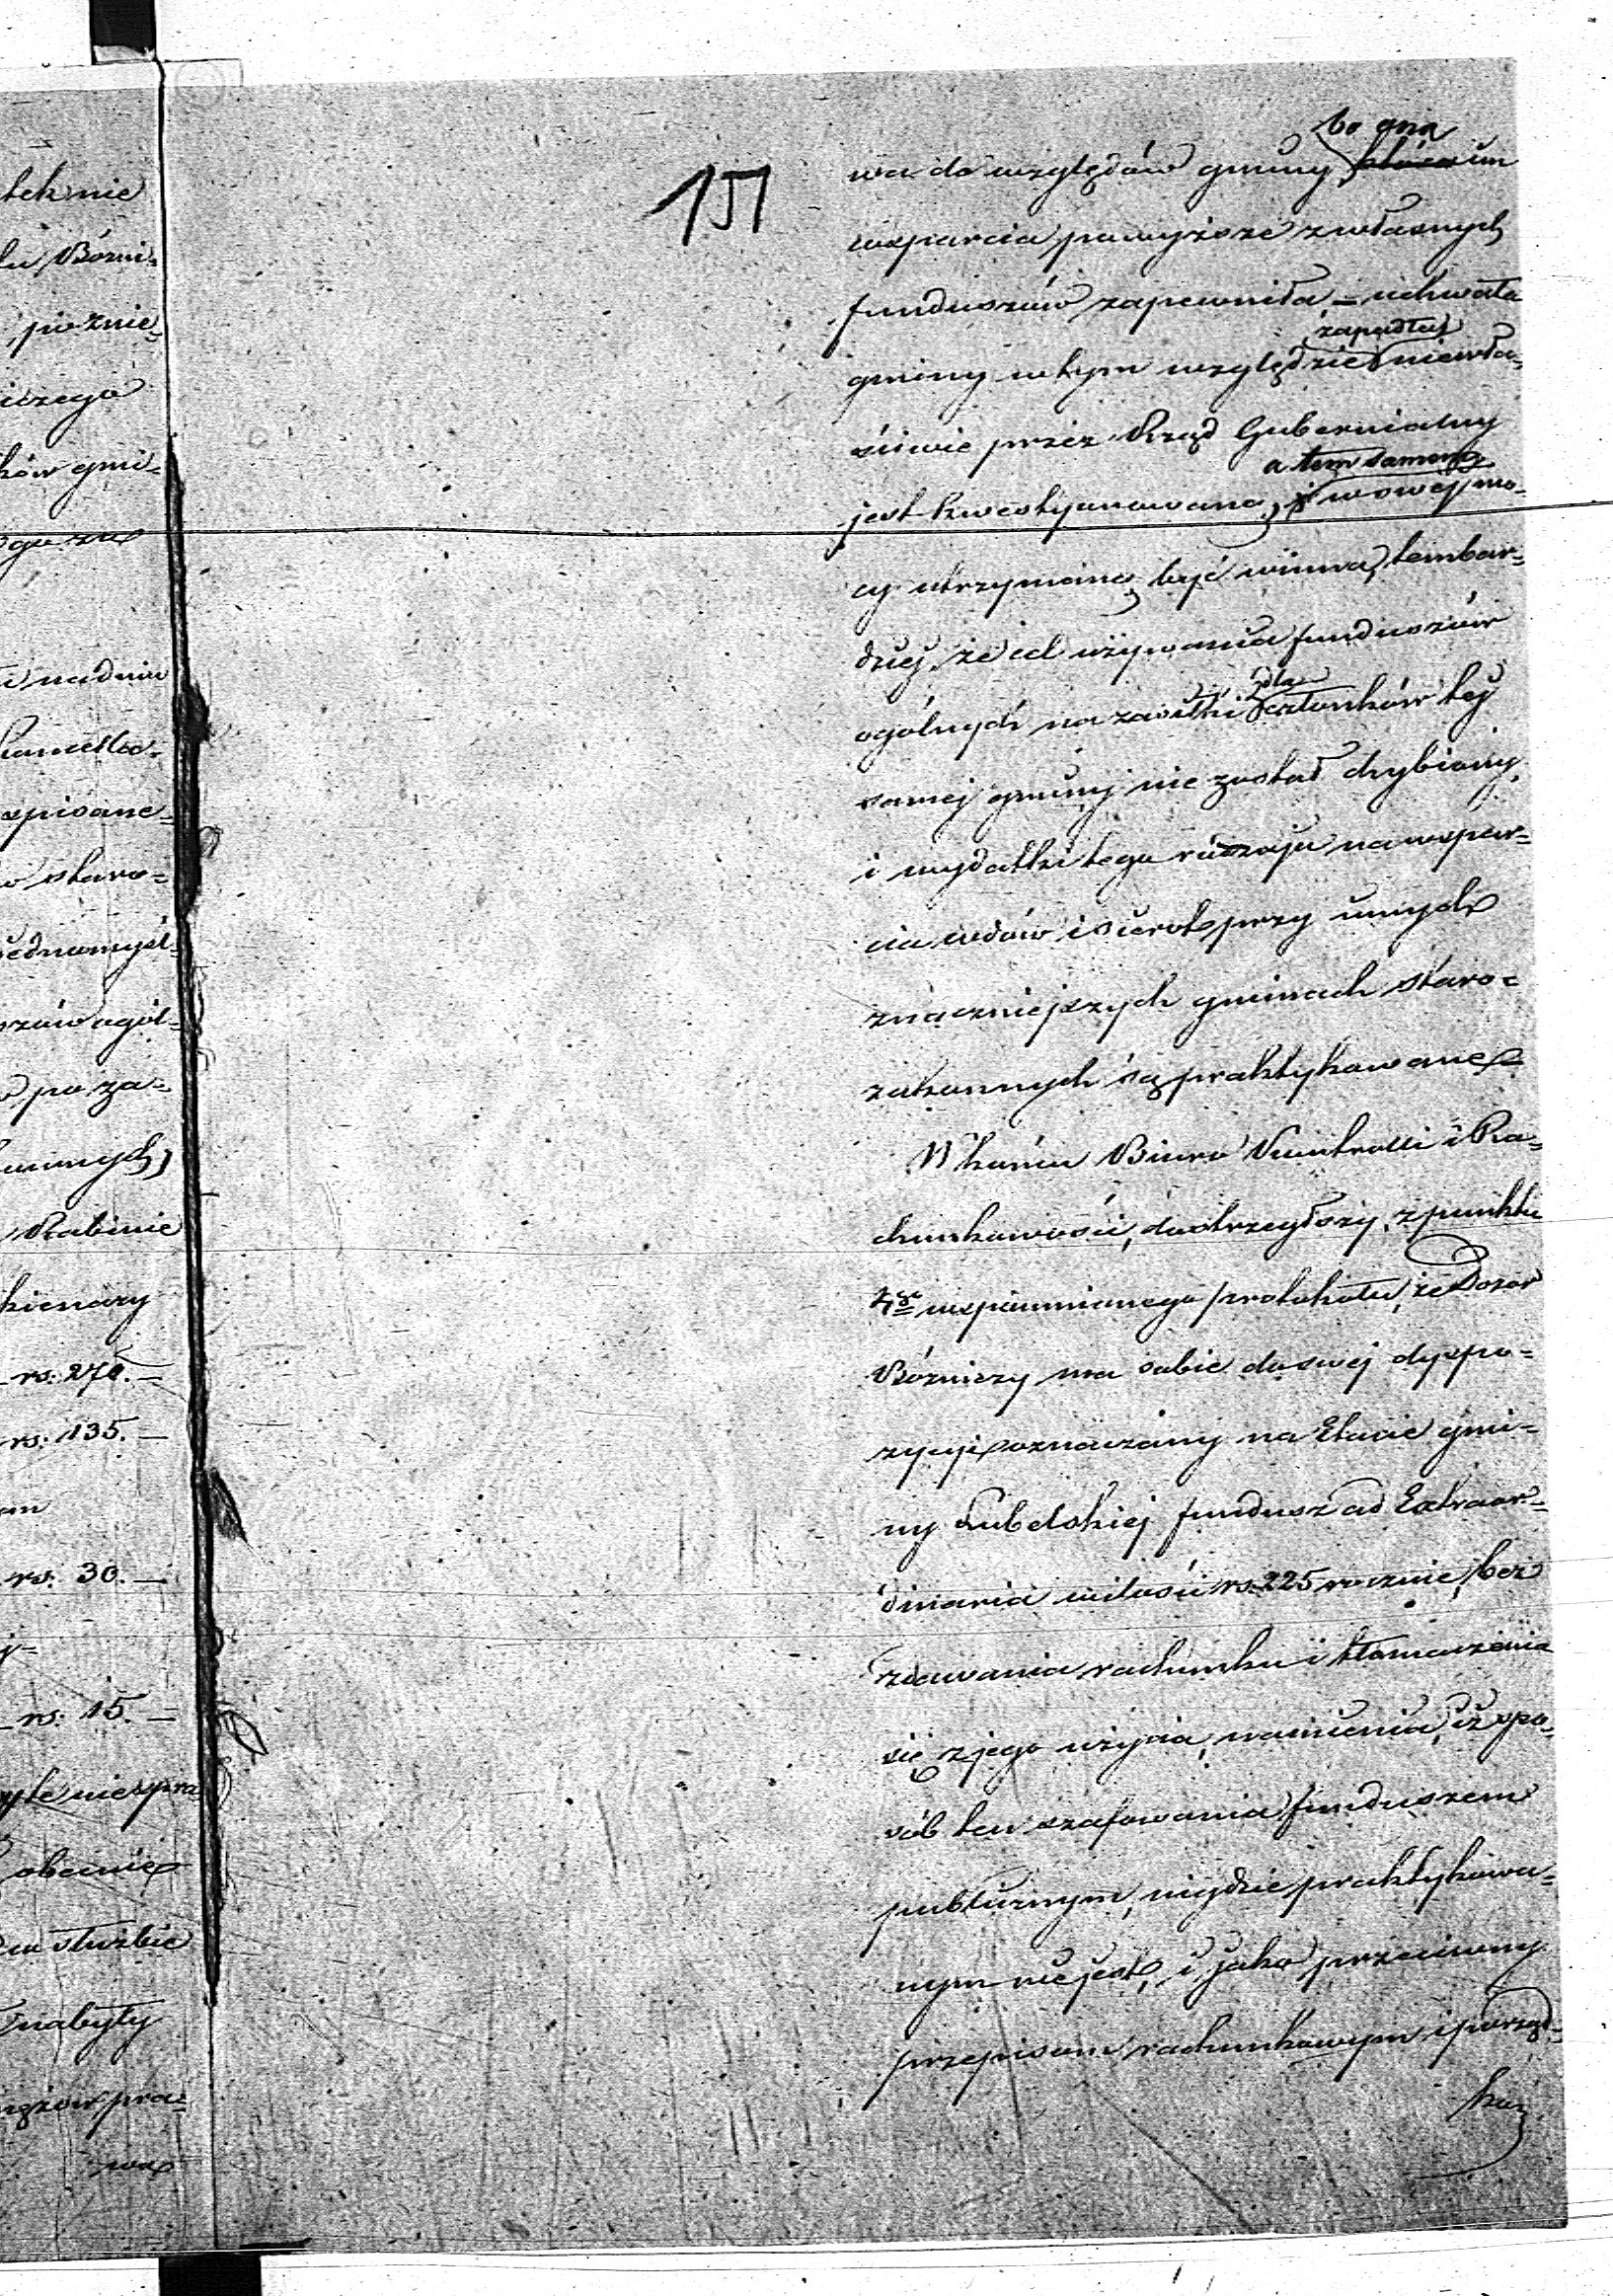 tek nie
lu Bóżni-
po znie-
iczego
ków gmi-
nadmie
Kancella-
spisane-
staro-
jednomyśl-
szów ogól-
po za-
Rabinie
rs: 270. —
rs: 135. —
rs. 30. —
rs: 15. —
obecnie
służbie
nabyły
pra-
wa
151
bo ona
wa do względów gminy, która im
wsparcia powyższe z własnych
funduszów zapewniła – uchwała
zapadła
gminy w tym względzie niewła-
ściwie przez Rząd Gubernialny
a tem samem
jest kwestyonowaną, i w swej mo-
cy utrzymaną być winna, tembar-
dziej że cel używania funduszów
dla
ogólnych na zasiłki członków tej
samej gminy nie został chybiony
i wydatki tego rodzaju na wspar-
cia wdów i sierot przy innych
znaczniejszych gminach staro-
zakonnych są praktykowane
W końcu Biuro Kontrolli i Ra-
chunkowości, dostrzegłszy z punktu
4go wspomnianego protokołu, że Dozór
Bóżniczy ma sobie do swej dyspo-
zycyi oznaczony na Etacie gmi-
ny Lubelskiej fundusz ad Extraor-
dinaria w ilości rs. 225 rocznie, bez
zdawania rachunku i tłomaczenia
się z jego użycia, namienia, iż spo-
sób ten szafowania funduszem
publicznym, nigdzie praktykowa-
nym nie jest, i jako przeciwny
przepisom rachunkowym i porząd-
kowi